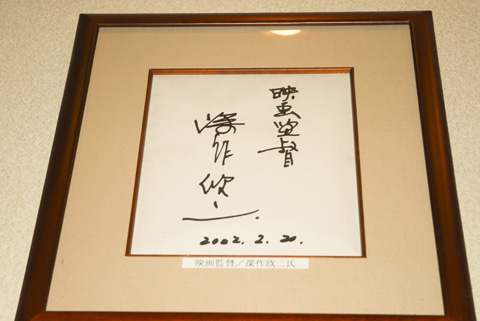 映画監督
深作欣二
2002.2.20.
映画監督／深作欣二氏